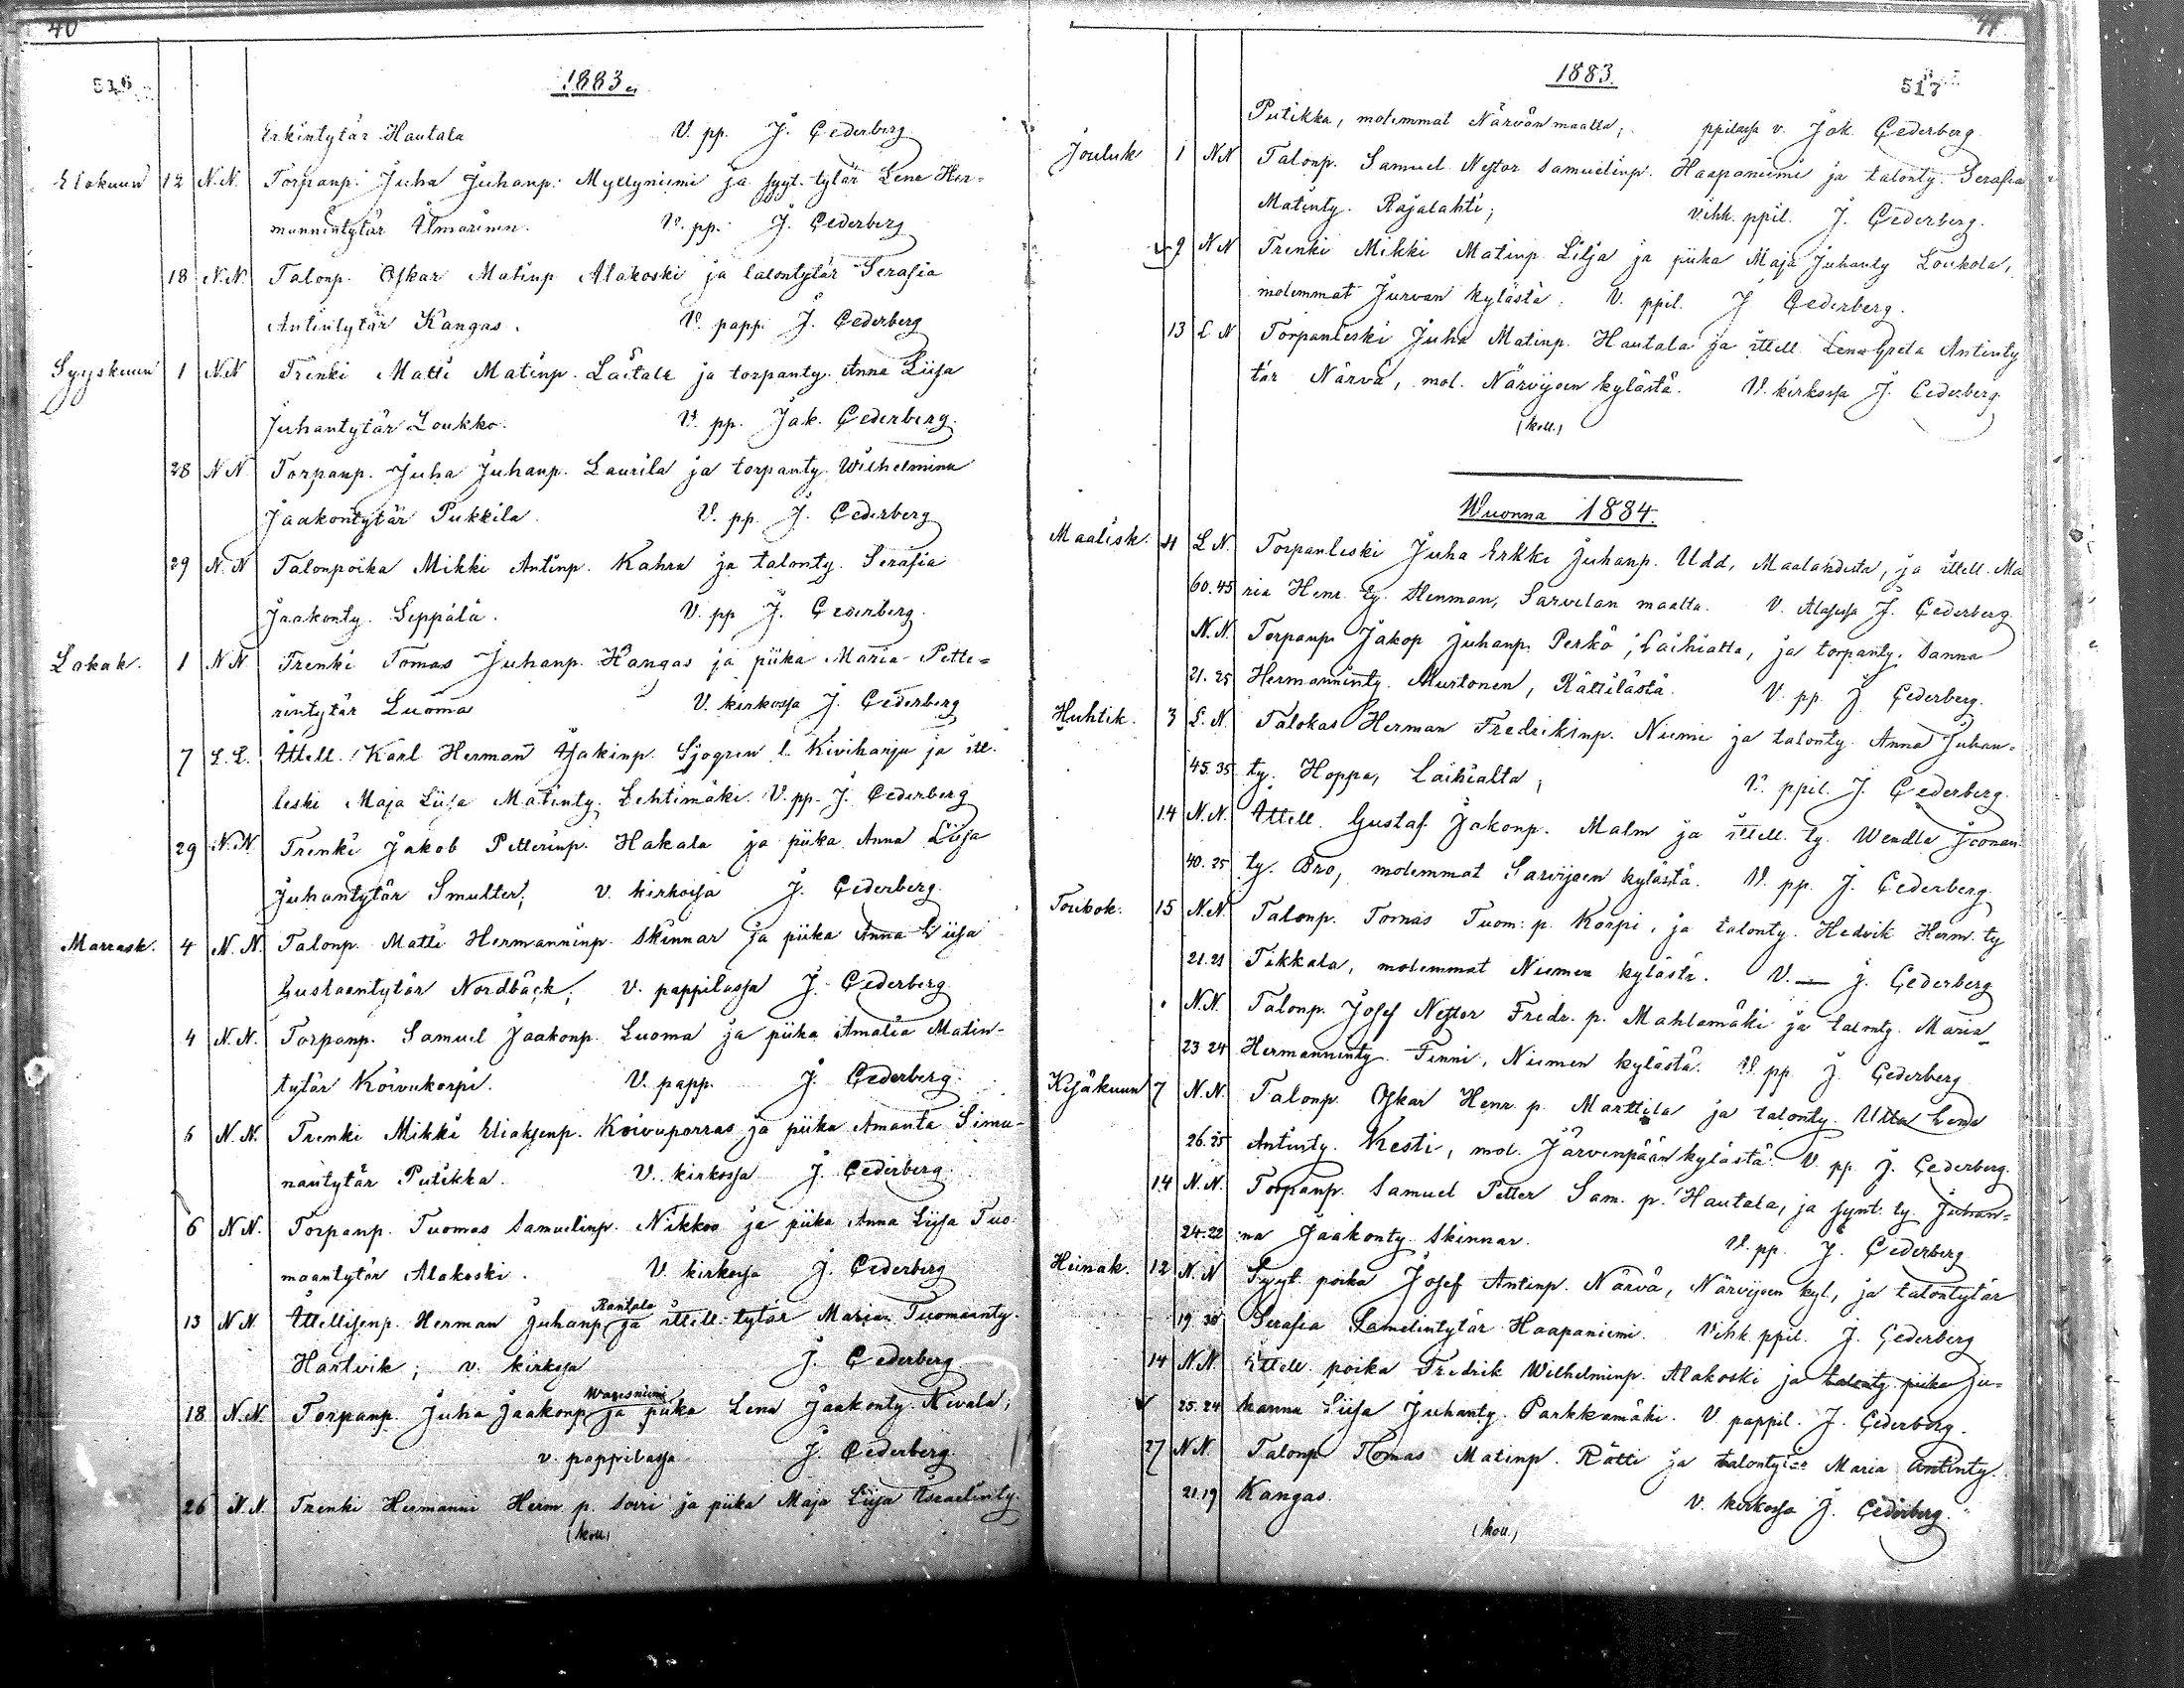 40
516
1883.
Erkintytär Hautala V. pp. J. Cederberg
Elokuun 12 N.N. Torpanp. Juha Juhanp. Myllyniemi ja syyt. tytär Lena Her-
mannintytär Ilmarinen. V. pp. J. Cederberg
18 N.N. Talonp. Oskar Matinp Alakoski ja talontytär Serafia
Antintytär Kangas. V. papp. J. Cederberg
Syyskuun 1 N.N Trenki Matti Matinp. Laitala ja torpanty. Anna Liisa
Juhantytär Loukko. V. pp. Jak. Cederberg.
28 N N Torpanp. Juha Juhanp. Laurila ja torpanty. Wilhelmina
Jaakontytär Pukkila. V. pp. J. Cederberg
29 N.N Talonpoika Mikki Antinp. Kahra ja talonty. Serafia
Jaakonty. Seppälä. V. pp J. Cederberg.
Lokak. 1 N N Trenki Tomas Juhanp. Kangas ja piika Maria Pette=
rintytär Luoma V. kirkossa J. Cederberg
7 L.L. Ittell. Karl Herman Isakinp. Sjögren l. Kiviharju ja itt.
leski Maja Liisa Matinty. Lehtimäki. V. pp. J. Cederberg
29 N.N. Trenki Jakob Petterinp. Hakala ja piika Anna Liisa
Juhantytär Smulter; V. kirkossa J. Cederberg.
Marrask. 4 N.N. Talonp. Matti Hermanninp. Skinnar ja piika Anna Liisa
Gustaantytär Nordbäck; V. pappilassa J. Cederberg
4 N.N. Torpanp. Samuel Jaakonp. Luoma ja piika Amalia Matin-
tytär Koivukorpi. V. papp. J. Cederberg.
5 N.N. Trenki Mikki Eliaksenp. Koivuporras ja piika Amanta Simu-
nantytär Putikka. V. kirkossa J. Cederberg.
6 N N. Torpanp. Tuomas Samuelinp. Nikkoo ja piika Anna Liisa Tuo-
maantytär Alakoski. V. kirkossa J. Cederberg
Rantala
13 N N. Ittellisenp. Herman Juhanp. ja ittell. tytär Maria Tuomaanty.
Hartvik; v. kirkossa J. Cederberg
Waresniemi
18 N.N. Torpanp. Juha Jaakonp. ja piika Lena Jaakonty. Kivela;
v. pappilassa J. Cederberg.
26 N.N. Trenki Hermanni Herm. p. Soiri ja piika Maja Liisa Israelinty.
(koll.)
41
1883.
517
Putikka, molemmat Närvän maalta; ppilassa v. Jak. Cederberg.
Jouluk 1 N N Talonp. Samuel Nestor Samuelinp. Haapaniemi ja talonty. Serafia
Matinty. Rajalahti; vihk. ppil. J. Cederberg.
9 N N Trenki Mikki Matinp Lilja ja piika Maja Juhanty Loukola,
molemmat Jurvan kylästä. V. ppil. J Cederberg.
13 L N Torpanleski Juha Matinp. Hautala ja ittell. Lena Greta Antinty
tär Närvä, mol. Närvijoen kylästä. V. kirkossa J. Cederberg.
(koll.)
Wuonna 1884.
Maalisk. 4 L N. Torpanleski Juha Erkki Juhanp. Udd, Maalahdesta, ja ittell. Ma
60.45 ria Henr. ty. Henman, Sarvelan maalta. V. J. Cederberg
N.N. Torpanp. Jakop Juhanp. Perkö; Laihialta, ja torpanty. Sanna
21.25 Hermanninty. Murtonen, Rättilästä. V. pp. J Cederberg.
Huhtik. 3 L.N. Talokas Herman Fredrikinp. Niemi ja talonty. Anna Juhan-
45.35 ty. Hoppa, Laihialta; V. ppil. J. Cederberg.
14 N.N. Ittell. Gustaf Jakonp. Malm ja ittell. ty. Wendla Joonan
40.25 ty. Bro, molemmat Sarvijoen kylästä. V. pp. J. Cederberg
Toukok. 15 N.N. Talonp. Tomas Tuom: p. Korpi, ja talonty. Hedvik Herm. ty
21.21 Tikkala, molemmat Niemen kylästä. V. — J. Cederberg
N.N. Talonp. Josef Nestor Fredr. p. Mahlamäki ja talonty. Maria
23 24 Hermanninty. Finni, Niemen kylästä. V. pp. J. Cederberg
Kesäkuun 7 N.N. Talonp. Oskar Henr. p. Marttila ja talonty. Ulla Lena
26.25 Antinty. Kesti, mol. Järvenpään kylästä. V. pp. J. Cederberg.
14 N.N. Torpanp. Samuel Petter Sam. p. Hautala, ja synt. ty. Juhan=
24.22 na Jaakonty. Skinnar. V. pp. J. Cederberg
Heinak. 12 N.N Syyt. poika Josef Antinp. Närvä, Närvijoen kyl, ja talontytär
19 30 Serafia Samelintytär Haapaniemi. Vihk ppil. J. Cederberg
14 N.N. Ittell. poika Fredrik Wilhelminp. Alakoski ja talonty piika Ju=
25.24 hanna Liisa Juhanty. Parkkamäki. V. pappil. J. Cederberg.
27 N N. Talonp Tomas Matinp. Rätti ja talontytär Maria Antinty.
21.19 Kangas. V. kirkossa J. Cederberg.
(koll.)